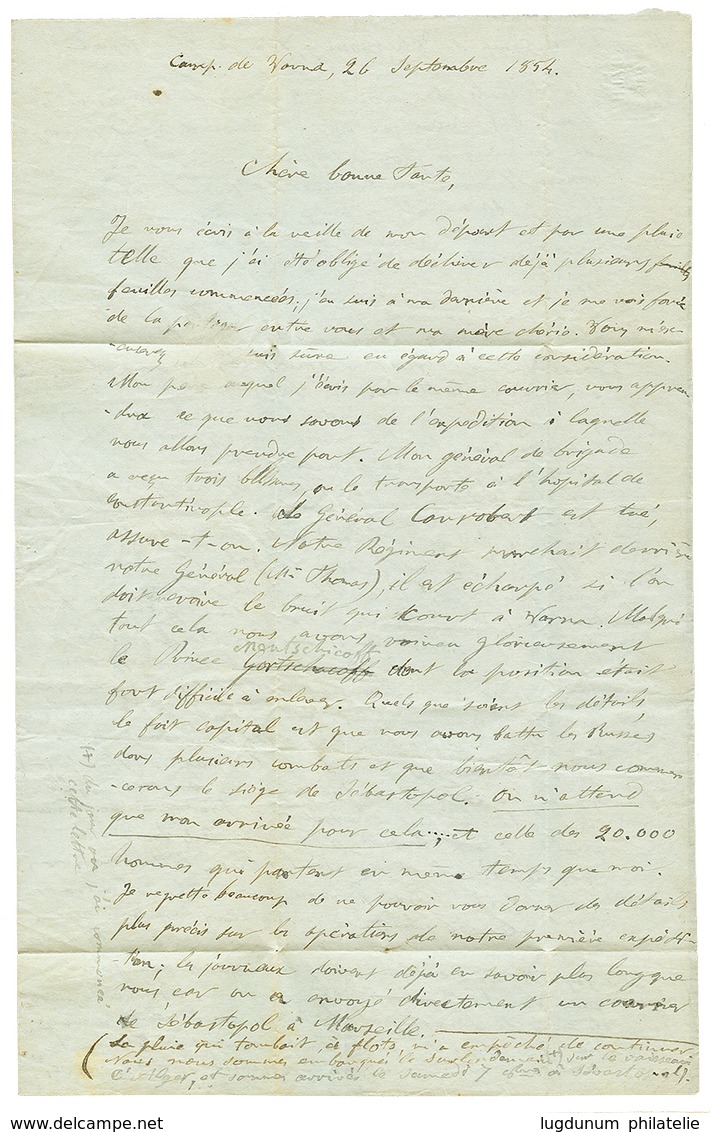 Camp de Varna, 26 Septembre 1854.
Chère bonne Tante,
Je vous écris à la veille de mon départ et par une pluie
telle que j'ai été obligé de déchirer déjà plusieurs
feuilles commencées; j'en suis à ma dernière et je me vois forcé
de la partager entre vous et ma mère chérie. Vous m'ex-
-cuserez suis sûre eu égard à cette considération.
Mon père auquel j'écris par le même courrier, vous appren-
-dra ce que nous savons de l'expédition à laquelle
nous allons prendre part. Mon général de brigade
a reçu trois blessures, on le transporte à l'hôpital de
Constantinople. Le Général Canrobert est tué,
assure-t-on. Notre Régiment marchait derrière
notre Général (Mr Thomas), il est écharpé si l'on
doit croire le bruit qui court à Varna. Malgré
tout cela nous avons vaincu glorieusement
le Prince Mentschicoff Gortschacoff dont la position était
fort difficile à enlever. Quels que soient les détails,
le fait capital est que nous avons battu les Russes
dans plusieurs combats et que bientôt nous commen-
-cerons le siège de Sébastopol. On n'attend
que mon arrivée pour cela....; et celle des 20.000
hommes qui partent en même temps que moi.
Je regrette beaucoup de ne pouvoir vous donner des détails
plus précis sur les opérations de notre première expédi-
-tion; les journaux doivent déjà en savoir plus long que
nous, car on a envoyé directement un courrier
de Sébastopol à Marseille.
(La pluie qui tombait à flots, m'a empêché de continuer
Nous nous sommes embarqués le surlendemain (+) sur le vaisseau
l'Alger, et sommes arrivés le samedi 7 8bre à Sébastopol).
(+) du jour où j'ai commencé
cette lettre
lugdunum philatelie